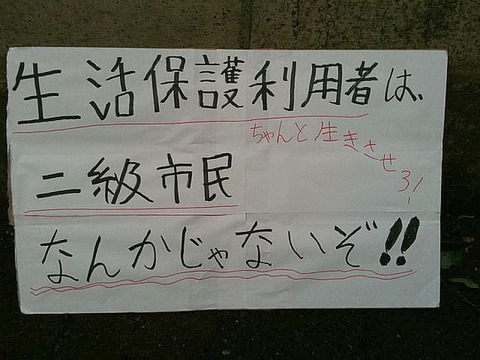 生活保護利用者は、
ちゃんと生きさせろ!
二級市民
なんかじゃないぞ!!